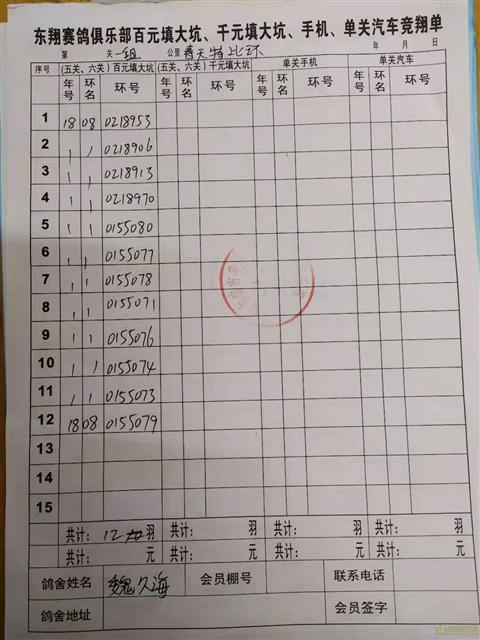 东翔赛鸽俱乐部百元填大坑、千元填大坑、手机、单关汽车竞翔单
第 关 一组 公里 年 月 日
序号 (五关、六关)百元填大坑 (五关、六关)千元填大坑 单关手机 单关汽车
年号 环名 环号 年号 环名 环号 年号 环名 环号 年号 环名 环号
1 18 08 0218953
2 、 、 0218906
3 、 、 0218913
4 、 、 0218970
5 、 、 0155080
6 、 、 0155077
7 、 、 0155078
8 、 、 0155071
9 、 、 0155076
10 、 、 0155074
11 、 、 0155073
12 18 08 0155079
13
14
15
共计: 12 羽 共计: 羽 共计: 羽 共计: 羽
共计: 元 共计: 元 共计: 元 共计: 元
鸽舍姓名 魏久海 会员棚号 联系电话
鸽舍地址 会员签字